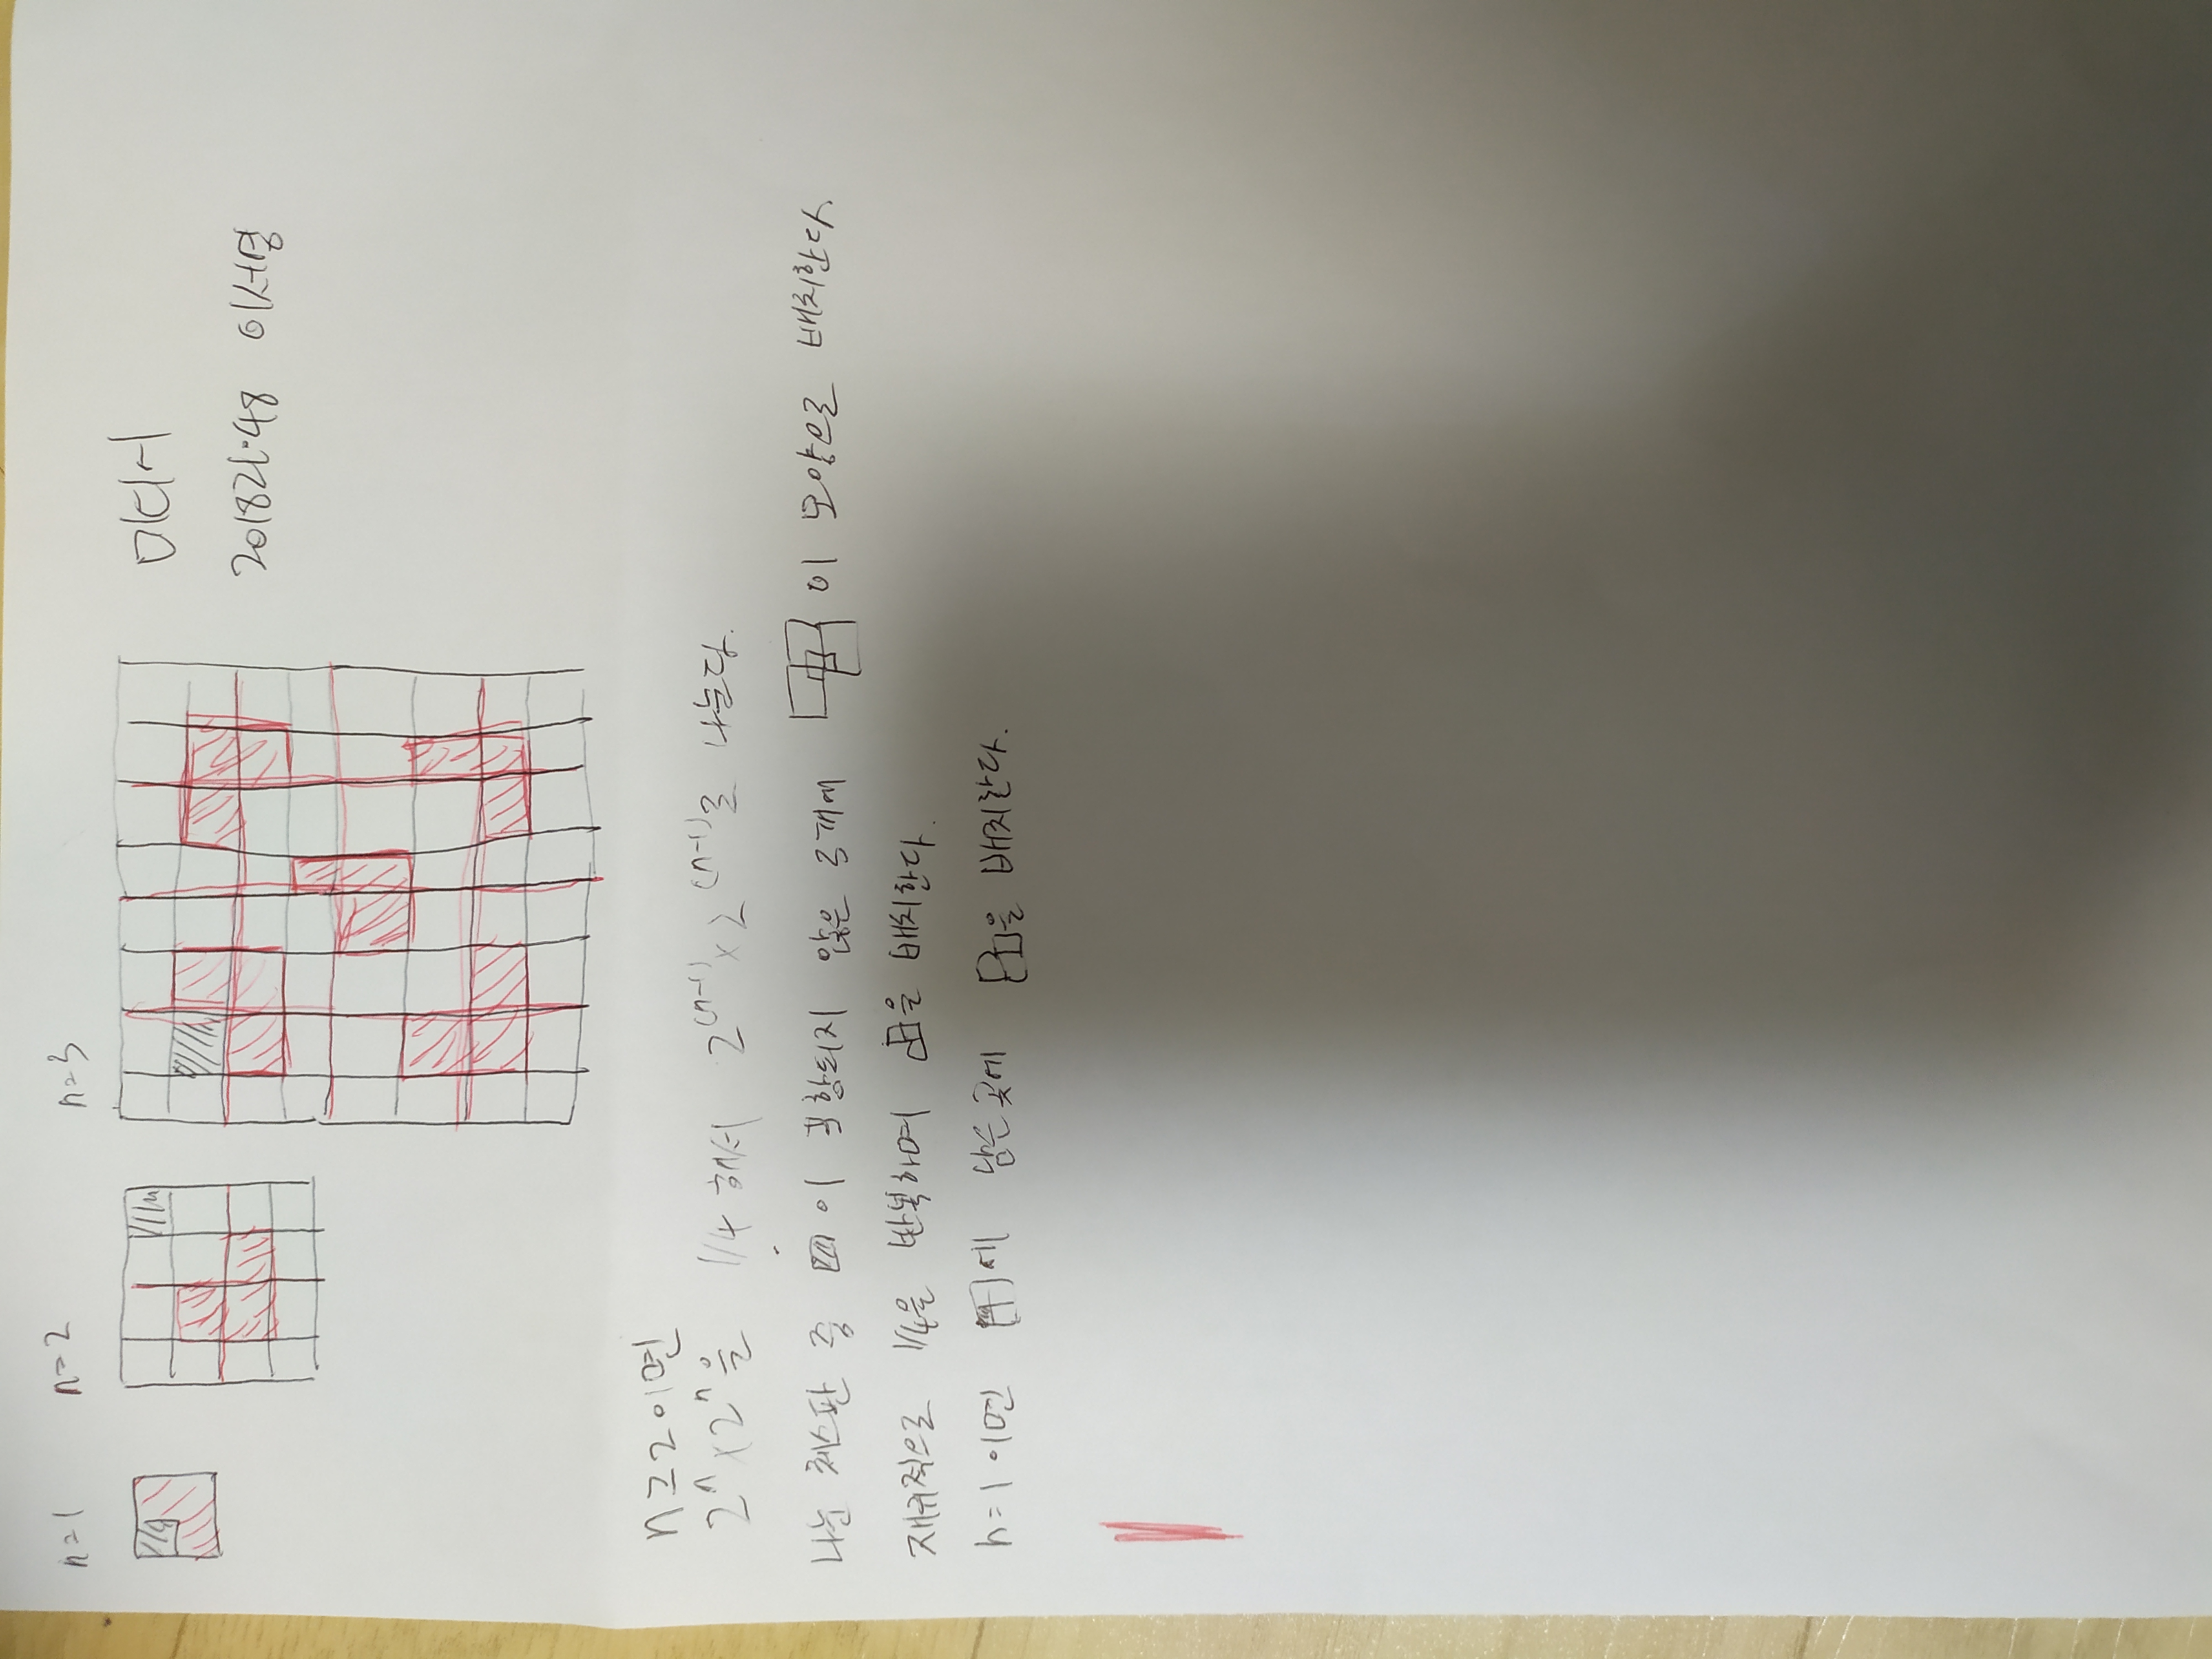 n=1 n=2 n=3
20182148 이서영
n≥2이면
2ⁿ×2ⁿ을 1/4 해서 2⁽ⁿ⁻¹⁾×2⁽ⁿ⁻¹⁾로 나눈다.
나눈 체스판 중 이 포함되지 않은 3개에 이 모양으로 배치한다.
재귀적으로 1/4을 반복하며 을 배치한다.
n=1이면 에 남은 곳에 을 배치한다.